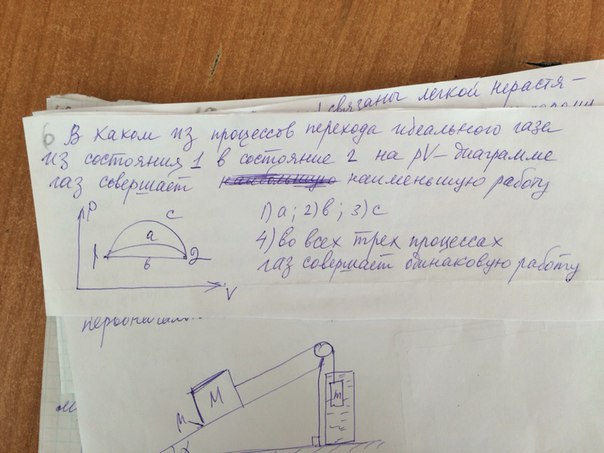 связаны легкой нерастя-
6 В каком из процессов перехода идеального газа
из состояния 1 в состояние 2 на pV-диаграмме
газ совершает наименьшую работу
P
c
a
1
2
в
V
1) а; 2) в; 3) с
4) во всех трех процессах
газ совершает одинаковую работу
M
m
μ
α